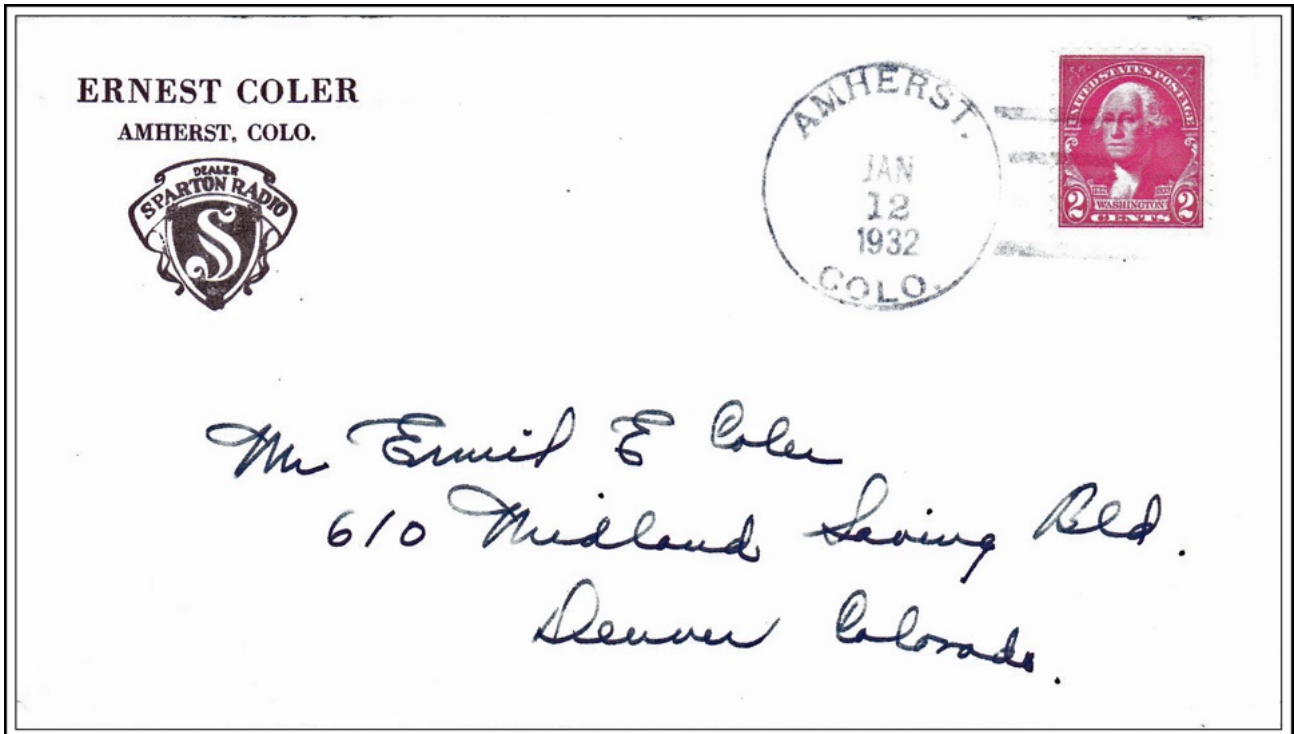 ERNEST COLER
AMHERST, COLO.
DEALER
SPARTON RADIO
S
AMHERST.
JAN
12
1932
COLO.
UNITED STATES POSTAGE
1732 1932
WASHINGTON
2 CENTS 2
Mr Ermil E Coler
610 Midland Saving Bld.
Denver Colorado.